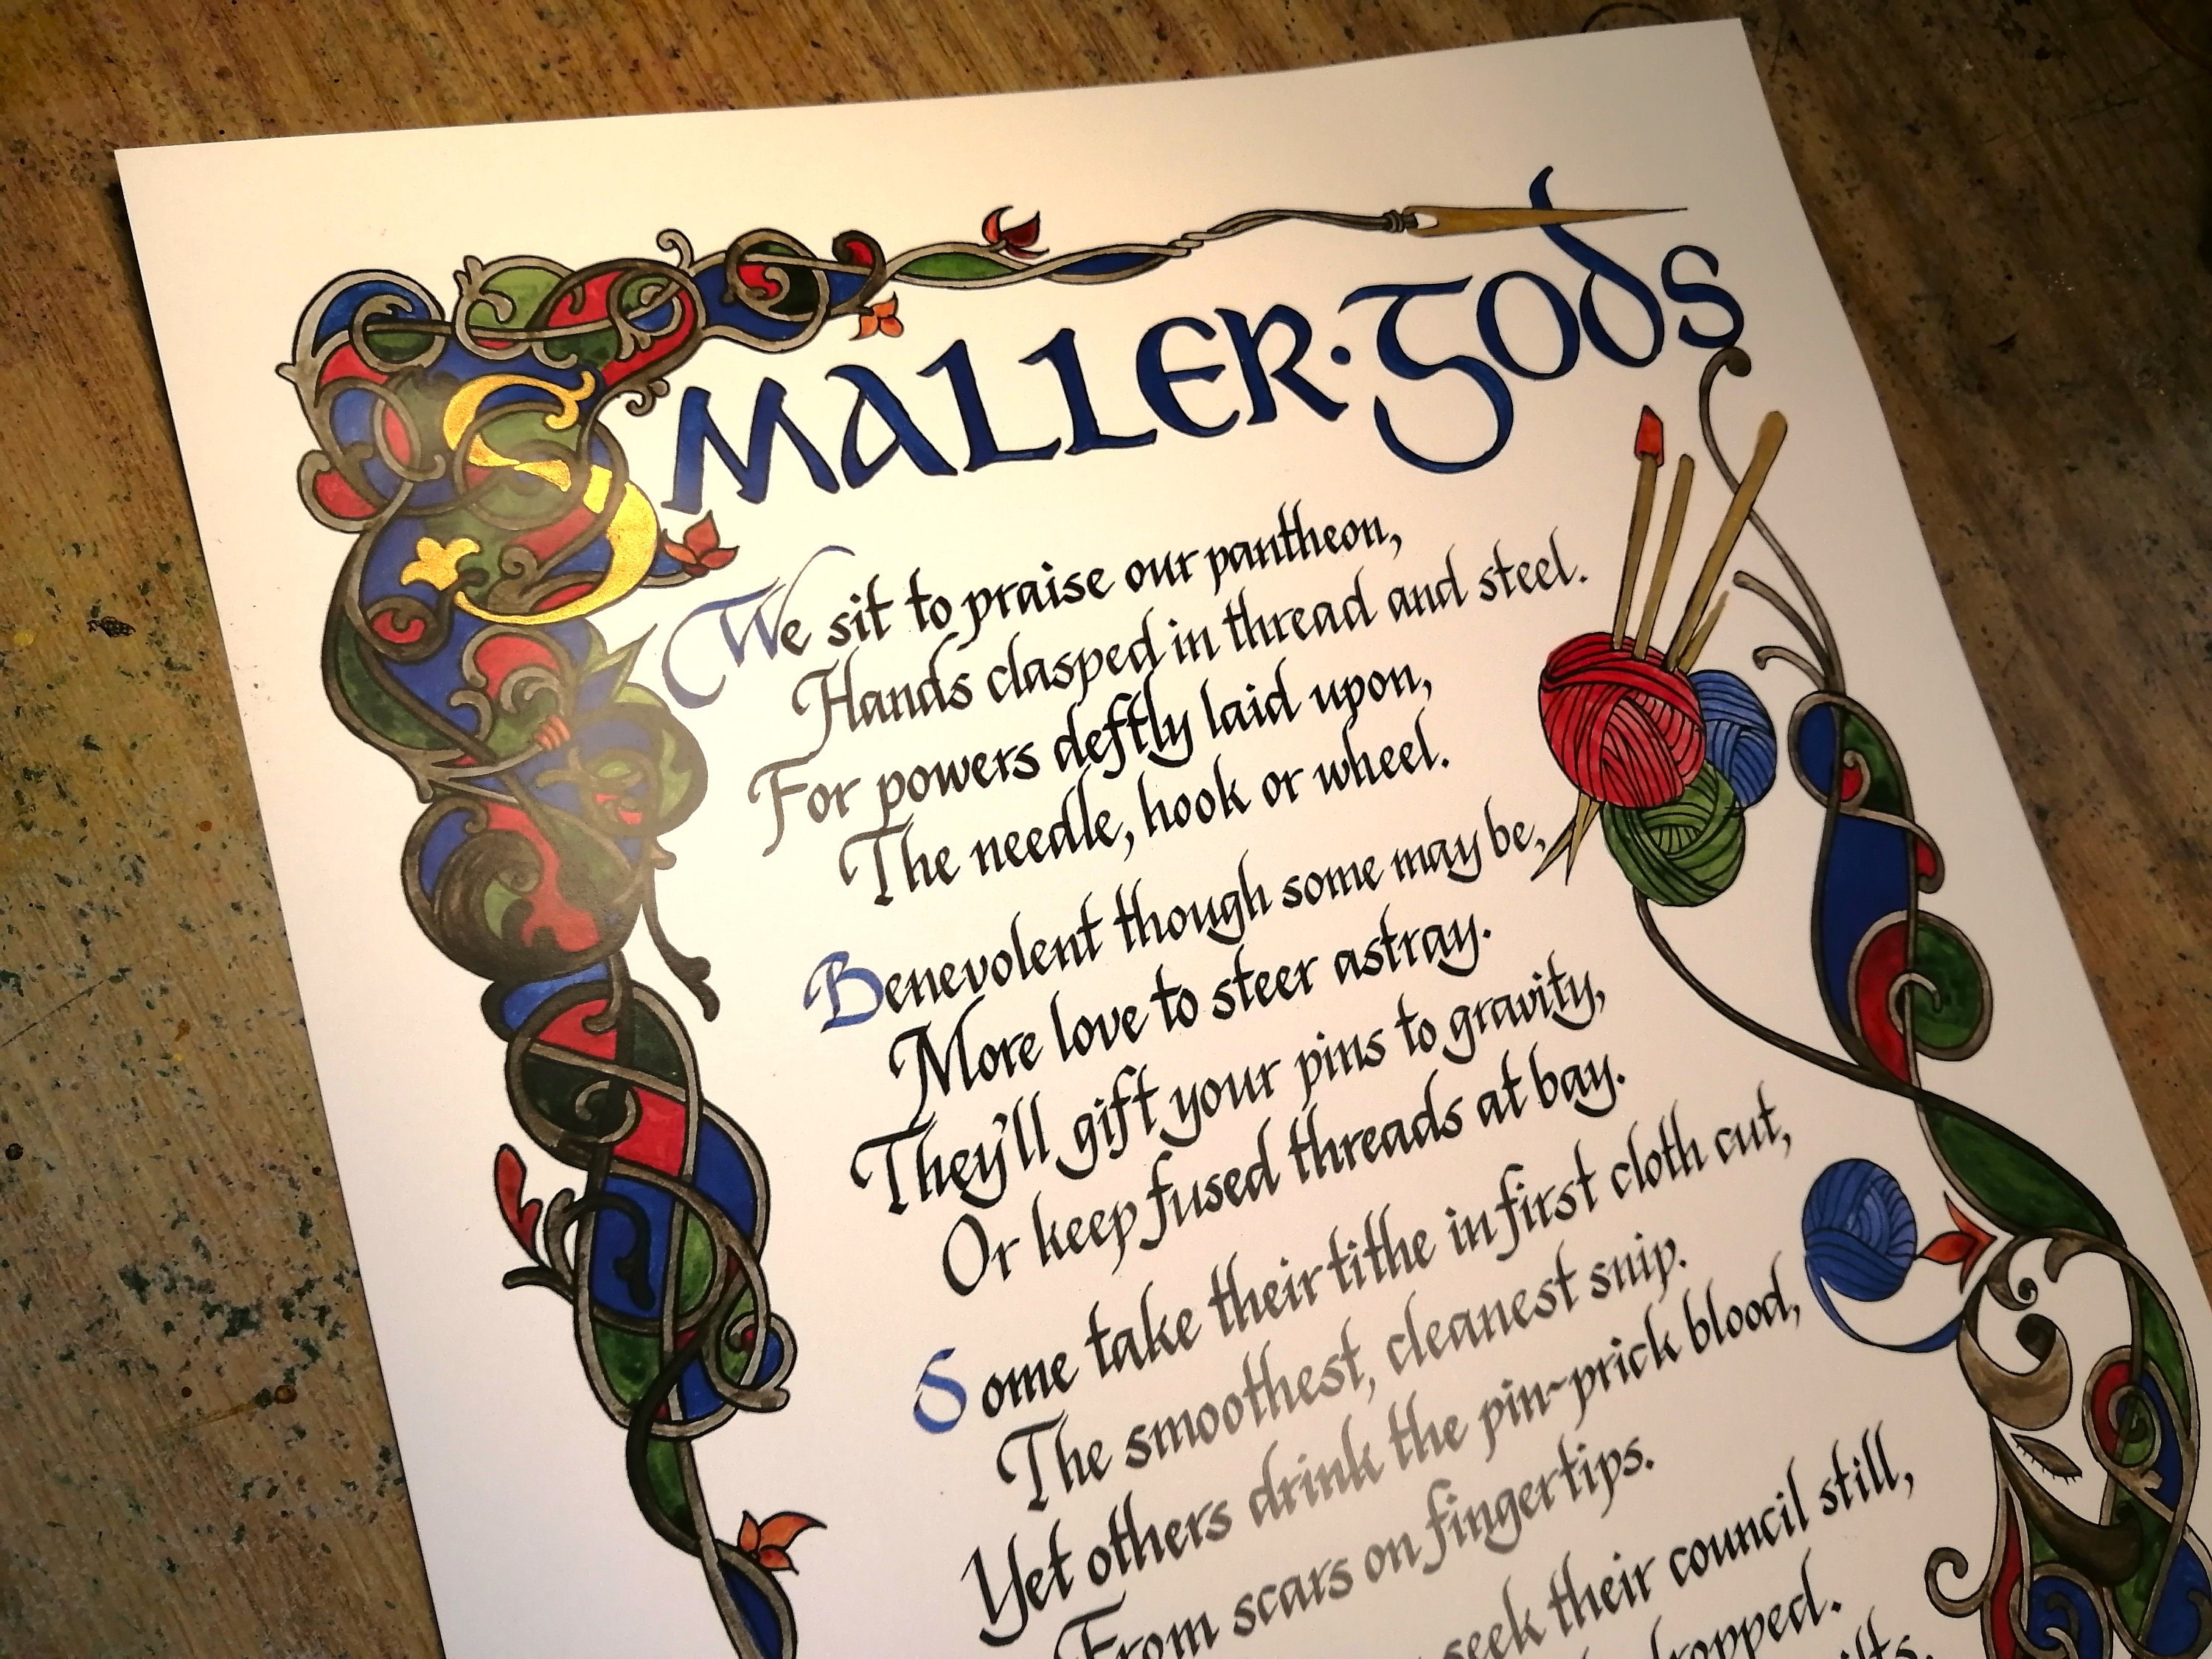 SMALLER · GODS
We sit to praise our pantheon,
Hands clasped in thread and steel.
For powers deftly laid upon,
The needle, hook or wheel.
Benevolent though some may be,
More love to steer astray.
They'll gift your pins to gravity,
Or keep fused threads at bay.
Some take their tithe in first cloth cut,
The smoothest, cleanest snip.
Yet others drink the pin-prick blood,
From scars on fingertips.
seek their council still,
dropped.